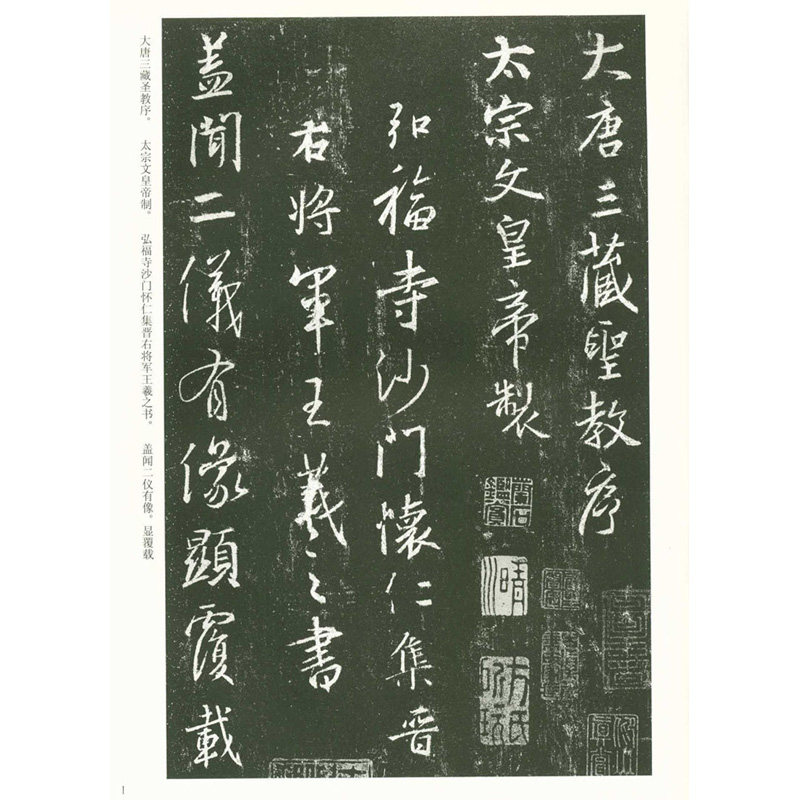 大唐三藏聖教序
太宗文皇帝製
弘福寺沙門懷仁集晋
右將軍王羲之書
蓋聞二儀有像顯覆載
大唐三藏圣教序。 太宗文皇帝制。 弘福寺沙门怀仁集晋右将军王羲之书。 盖闻二仪有像。显覆载
1